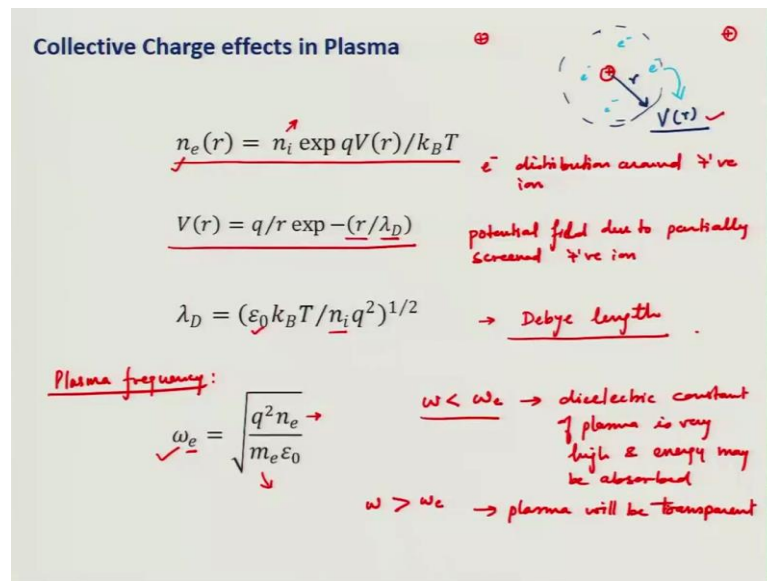 Collective Charge effects in Plasma
⊕
⊕
e⁻
e⁻
e⁻
⊕
r
e⁻
V(r)
nₑ(r) = nᵢ exp qV(r)/k_BT
e⁻ distribution around +'ve
ion
V(r) = q/r exp −(r/λ_D)
potential field due to partially
screened +'ve ion
λ_D = (ε₀k_BT/nᵢq²)^{1/2}
→ Debye length
Plasma frequency:
ωₑ = √(q²nₑ/mₑε₀)
ω < ωₑ → dielectric constant
of plasma is very
high & energy may
be absorbed
ω > ωₑ → plasma will be transparent